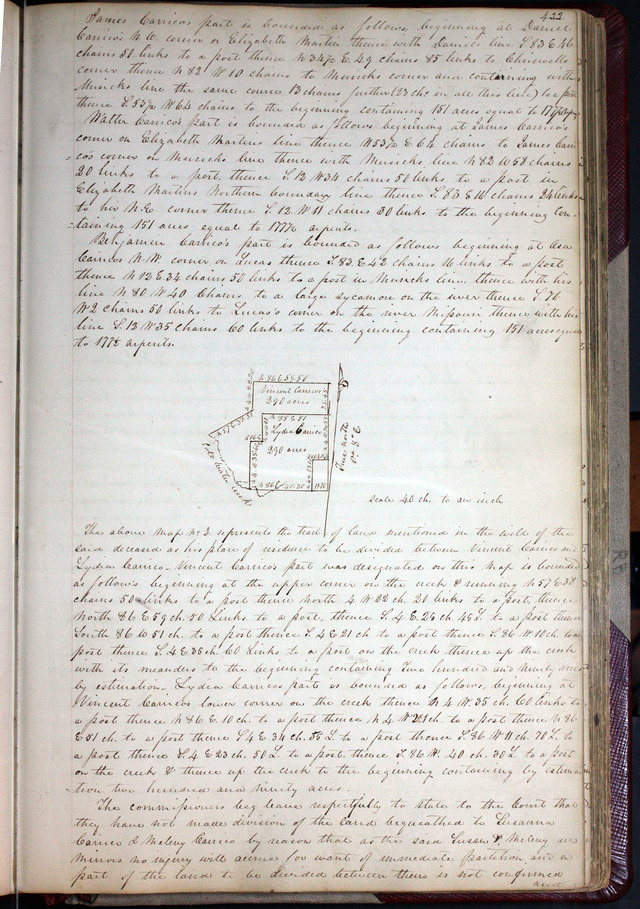 422
James Carrico's part is bounded as follows, beginning at Daniel
Carrico's N.W. corner on Elizabeth Martin thence with Daniel's line S 83 E 46
chains 50 links to a post thence N 34½ E 49 chains 85 links to
corner thence N 82 W 10 chains to Musicks corner and containing with
Musicks line the same course 13 chains further (23 chs in all this line) to a post
thence S. 53½ W 64 chains to the beginning containing 151 acres equal to 177½
Walter Carrico's part is bounded as follows beginning at James Carrico's
corner on Elizabeth Martins line thence N 53½ E 64 chains to James Carri
co's corner on Musicks line thence with Musicks line N 82 W 58 chains
20 links to a post, thence S. 12 W 34 chains 50 links to a post in
Elizabeth Martins Northern boundary line thence S. 83 E 11 chains 24 links
to her N.E. corner thence S. 12 W 11 chains 30 links to the beginning Con-
taining 151 acres equal to 177½ arpents.
Benjamin Carrico's part is bounded as follows beginning at Asa
Carricos N.W. corner on Lucas thence S. 83. E 42 chains 16 links to a post
thence N 12 E 34 chains 50 links to a post in Musicks line, thence with his
line N 80 W 40 Chains to a large sycamore on the river thence S. 76
W 2 chains 50 links to Lucas's corner on the river Missouri thence with his
line S. 13 W 35 chains 60 links to the beginning containing 151 acres equal
to 177½ arpents.
N 86 E 59.50
Vincent Carricos
290 acres
N 57 E 38.50
N 85 E 51
Lydia Carrico
290 acres
True North
Va. 8° E
N 86 E 40.30
scale 40 ch. to an inch
The above map No 2. represents the tract of land mentioned in the will of the
said deceased as his place of residence to be divided between Vincent Carrico and
Lydia Carrico. Vincent Carrico's part was designated on this Map is bounded
as follow's beginning at the upper corner on the creek & running N 57 E 38
chains 50 links to a post thence north 4 W 22 ch. 20 links to a post, thence
North 86 E 59 ch. 50 Links to a post, thence S. 4 E. 26 ch 45 L. to a post thence
South 86 W 51 ch. to a post thence S. 4 E 21 ch to a post thence S. 86 W 10 ch. to a
post thence S. 4 E 35 ch. 60 Links to a post on the creek thence up the creek
with its meanders to the beginning containing Two hundred and ninety acres
by estimation. Lydia Carricos part is bounded as follows, beginning at
Vincent Carricos lower corner on the creek thence N 4 W. 35 ch. 60 links to
a post thence N 86 E. 10 ch. to a post thence N 4 W 21 ch. to a post thence N 86
E 51 ch. to a post thence S 4 E 34 ch. 55 L. to a post thence S. 86 W 11 ch. 70 L. to
a post thence S. 4 E 23 ch. 50 L. to a post. thence S. 86 W. 40 ch. 30 L. to a post
on the creek & thence up the creek to the beginning containing by estima
tion two hundred and ninety acres.
The commissioners beg leave respectfully to state to the Court that
they have not made division of the land bequeathed to Susanna
Carrico & Meleny Carrico by reason that as the said Susan & Meleny are
Minors no injury will accrue for want of immediate partition and a
part of the land to be divided between them is not confirmed
and